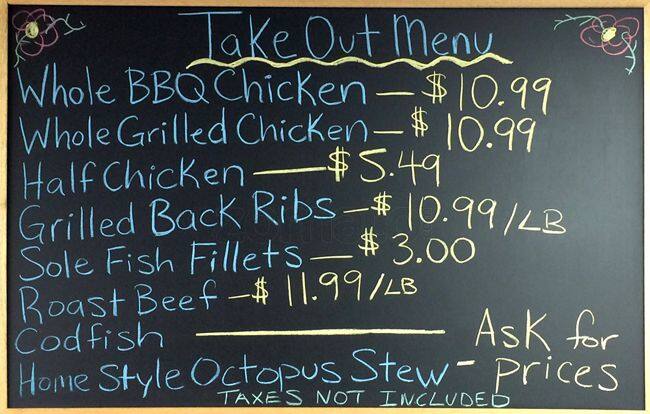 Take Out Menu
Whole BBQ Chicken — $10.99
Whole Grilled Chicken — $10.99
Half Chicken — $5.49
Grilled Back Ribs — $10.99/LB
Sole Fish Fillets — $3.00
Roast Beef — $11.99/LB
Codfish — Ask for
Home Style Octopus Stew - prices
TAXES NOT INCLUDED